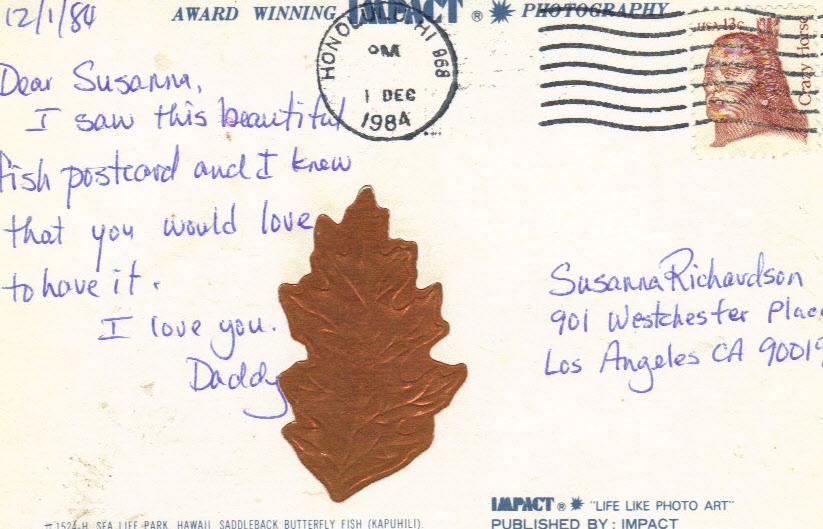 12/1/84
AWARD WINNING IMPACT ® PHOTOGRAPHY
HONOLULU, HI 968
PM
1 DEC
1984
USA 13c
Crazy Horse
Dear Susanna,
I saw this beautiful
fish postcard and I knew
that you would love
to have it.
I love you.
Daddy
Susanna Richardson
901 Westchester Place
Los Angeles CA 90019
IMPACT ® "LIFE LIKE PHOTO ART"
PUBLISHED BY: IMPACT
1524-H SEA LIFE PARK, HAWAII, SADDLEBACK BUTTERFLY FISH (KAPUHILI).